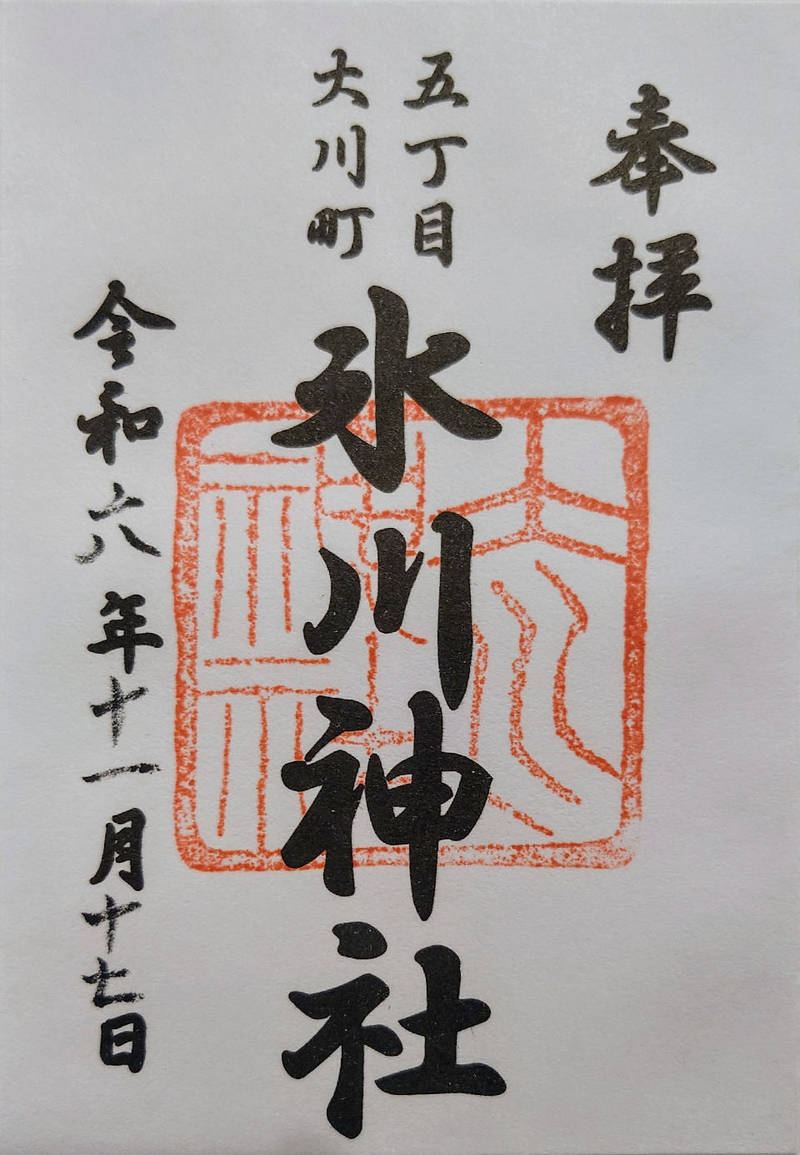 奉拝
五丁目
大川町
氷川神社
令和六年十一月十七日